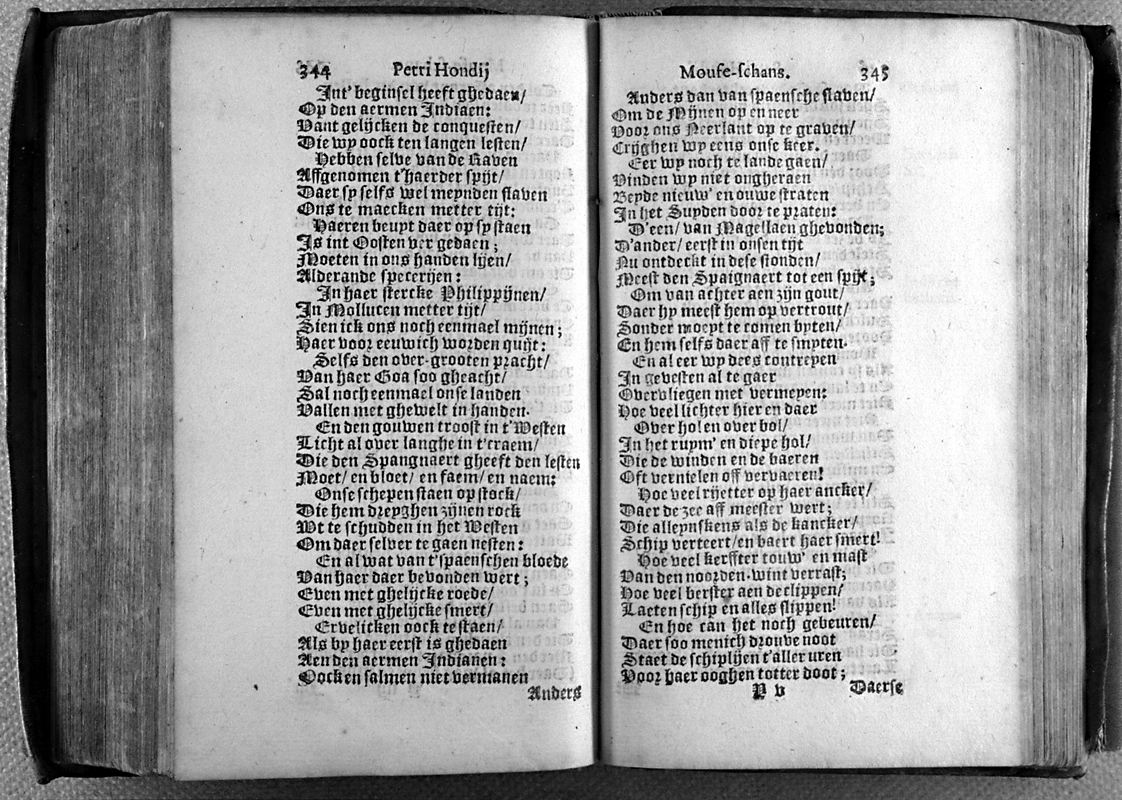 344 Petri Hondij
Int' beginsel heeft ghedaen/
Op den aermen Indiaen:
Want gelijcken de conquesten/
Die wy oock ten langen lesten/
Hebben selve van de Raven
Affgenomen t'haerder spijt/
Daer sy selfs wel meynden slaven
Ons te maecken metter tijt:
Haeren beupt daer op sy staen
Is int Oosten ver gedaen;
Moeten in ons handen lijen/
Alderande specerijen:
In haer stercke Philippijnen/
In Mollucen metter tijt/
Sien ick ons noch eenmael mijnen;
Haer voor eeuwich worden quijt:
Selfs den over-grooten pracht/
Van haer Goa soo gheacht/
Sal noch eenmael onse landen
Vallen met ghewelt in handen.
En den gouwen troost in t'Westen
Licht al over langhe in t'craem/
Die den Spangnaert gheeft den lesten
Moet/ en bloet/ en faem/ en naem:
Onse schepen staen op stock/
Die hem dreyghen zijnen rock
Wt te schudden in het Westen
Om daer selver te gaen nesten:
En al wat van t'spaenschen bloede
Van haer daer bevonden wert;
Even met ghelijcke roede/
Even met ghelijcke smert/
Ervelicken oock te staen/
Als by haer eerst is ghedaen
Aen den aermen Indianen:
Oock en salmen niet vermanen
Anders
Mouse-schans. 345
Anders dan van spaensche slaven/
Om de Mijnen op en neer
Voor ons Neerlant op te graven/
Crijghen wy eens onse keer.
Eer wy noch te lande gaen/
Vinden wy niet ongheraen
Beyde nieuw' en ouwe straten
In het Suyden door te praten:
D'een/ van Magellaen ghevonden;
D'ander/ eerst in onsen tijt
Nu ontdeckt in dese stonden/
Meest den Spaignaert tot een spijt;
Om van achter aen zijn gout/
Daer hy meest hem op vertrout/
Sonder moeyt te comen byten/
En hem selfs daer aff te smyten.
En al eer wy dees contreyen
In gevesten al te gaer
Overvliegen met vermeyen:
Hoe veel lichter hier en daer
Over hol en over bol/
In het ruym' en diepe hol/
Die de winden en de baeren
Oft vernielen off vervaeren!
Hoe veel rijetter op haer ancker/
Daer de zee aff meester wert;
Die alleynskens als de kancker/
Schip verteert/ en baert haer smert!
Hoe veel kerffter touw' en mast
Van den noorden-wint verrast;
Hoe veel berster aen de clippen/
Laeten schip en alles slippen!
En hoe can het noch gebeuren/
Daer soo menich drouve noot
Staet de schiplijen t'aller uren
Voor haer ooghen totter doot;
P v Daerse